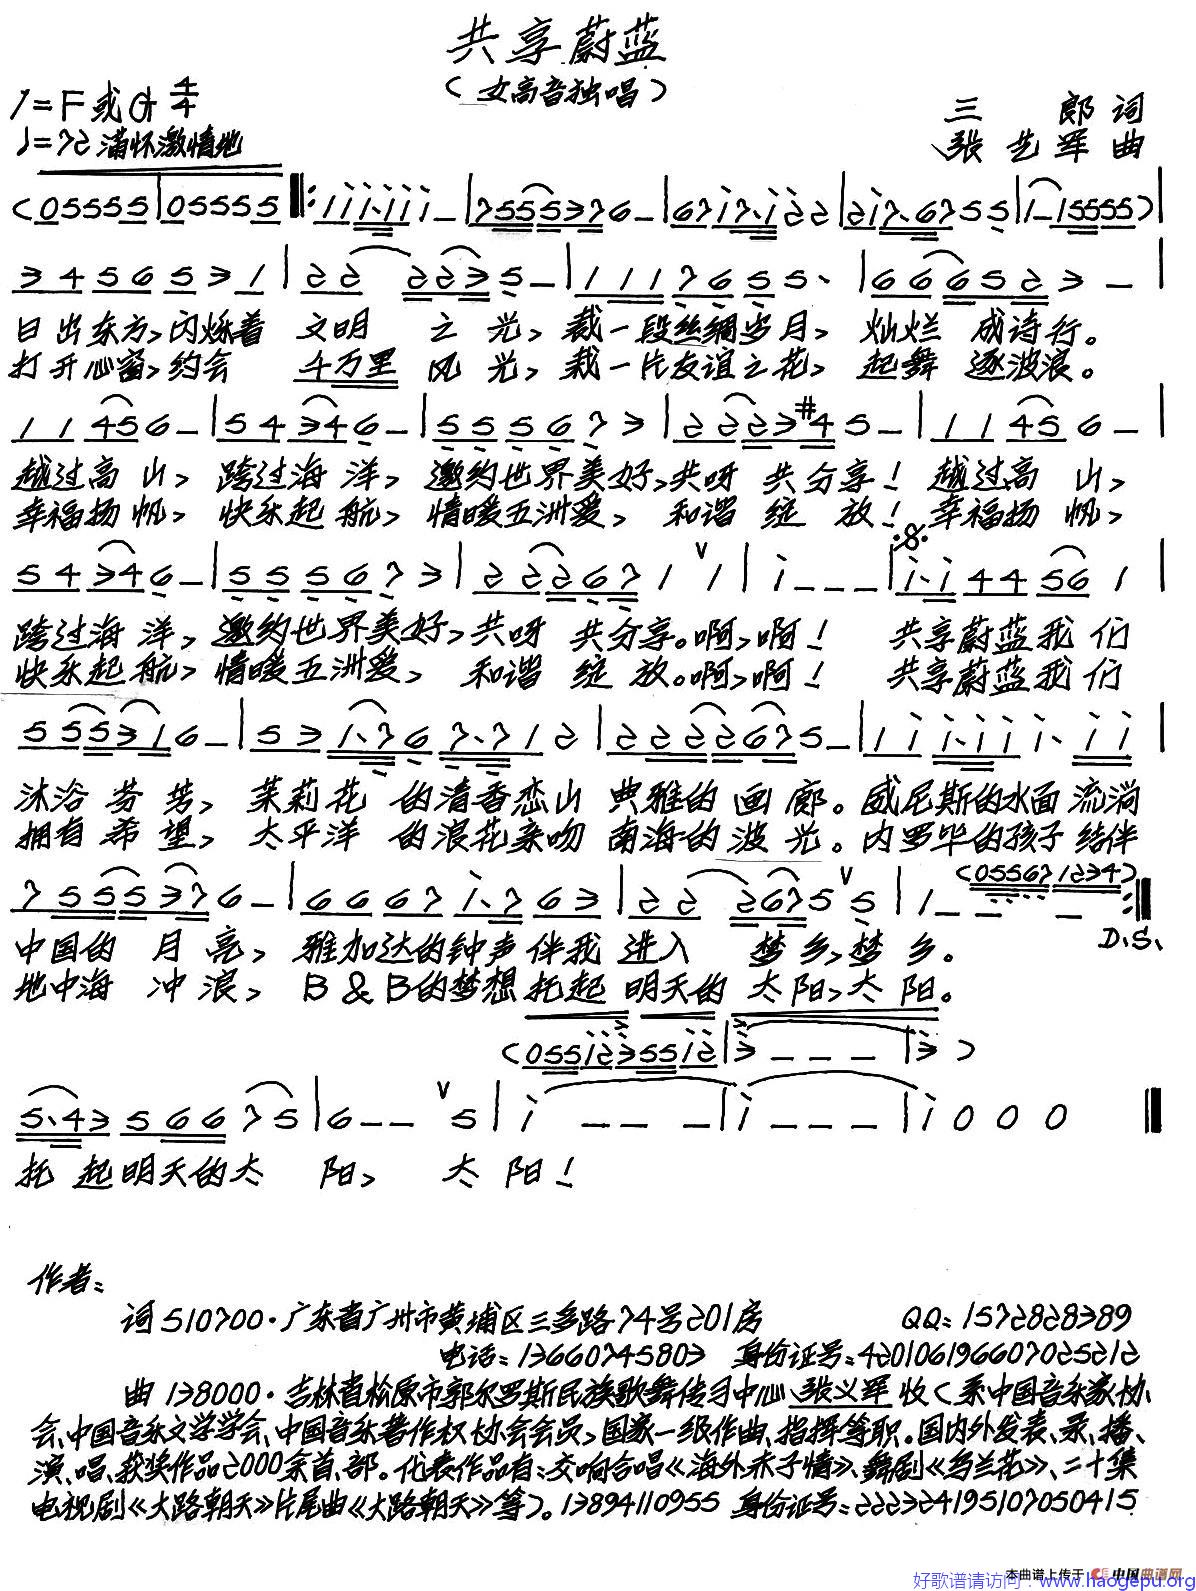 共享蔚蓝
(女高音独唱)
1=F或G 4/4
三 郎 词
♩=72 满怀激情地
张艺军 曲
(05555|05555‖:111·111-|7555376-|6717·122|217·6755|1-15555)|
3456531|22 2235-|1117655·|666523-|
日出东方,闪烁着 文明 之光,裁一段丝绸岁月,灿烂 成诗行。
打开心窗,约会 千万里 风光,裁一片友谊之花,起舞 逐波浪。
11456-|54346-|555673|2223#45-|11456-|
越过高 山,跨过海 洋,邀约世界美好,共呀 共分享!越过高 山,
幸福扬 帆,快乐起 航,情暖五洲爱,和谐 绽 放!幸福扬 帆,
54346-|555673|222671 ∨1|1---|1·144561|
跨过海 洋,邀约世界美好,共呀 共分享。啊,啊!共享蔚蓝我们
快乐起航,情暖五洲爱,和谐 绽 放。啊,啊!共享蔚蓝我们
555316-|531·767·712|22222675-|111·111·11|
沐浴 芬芳,茉莉花 的清香恋山 典雅的 画廊。威尼斯的水面流淌
拥有 希望,太平洋 的浪花亲吻 南海的 波光。内罗毕的孩子结伴
7555376-|66671·763|222675 ∨5|1---:‖
(05567 1234)
D.S.
中国的 月亮,雅加达的钟声伴我 进入 梦乡,梦乡。
地中海 冲浪,B&B的梦想托起 明天的 太阳,太阳。
(055123 5512|3---|3)
5·43 56675|6--∨5|1---|1---|1000‖
托 起明天的太 阳,太 阳!
作者:
词510700·广东省广州市黄埔区三多路74号201房 QQ:1572828389
电话:13660745803 身份证号:420106196607025212
曲138000·吉林省松原市郭尔罗斯民族歌舞传习中心张义军 收(系中国音乐家协
会、中国音乐文学学会、中国音乐著作权协会会员,国家一级作曲、指挥等职。国内外发表、录、播、
演、唱、获奖作品2000余首、部。代表作品有:交响合唱《海外赤子情》、舞剧《乌兰花》、二十集
电视剧《大路朝天》片尾曲《大路朝天》等)。13894110955 身份证号:222324195107050415
本曲谱上传于 中国曲谱网
好歌谱请访问:www.haogepu.org